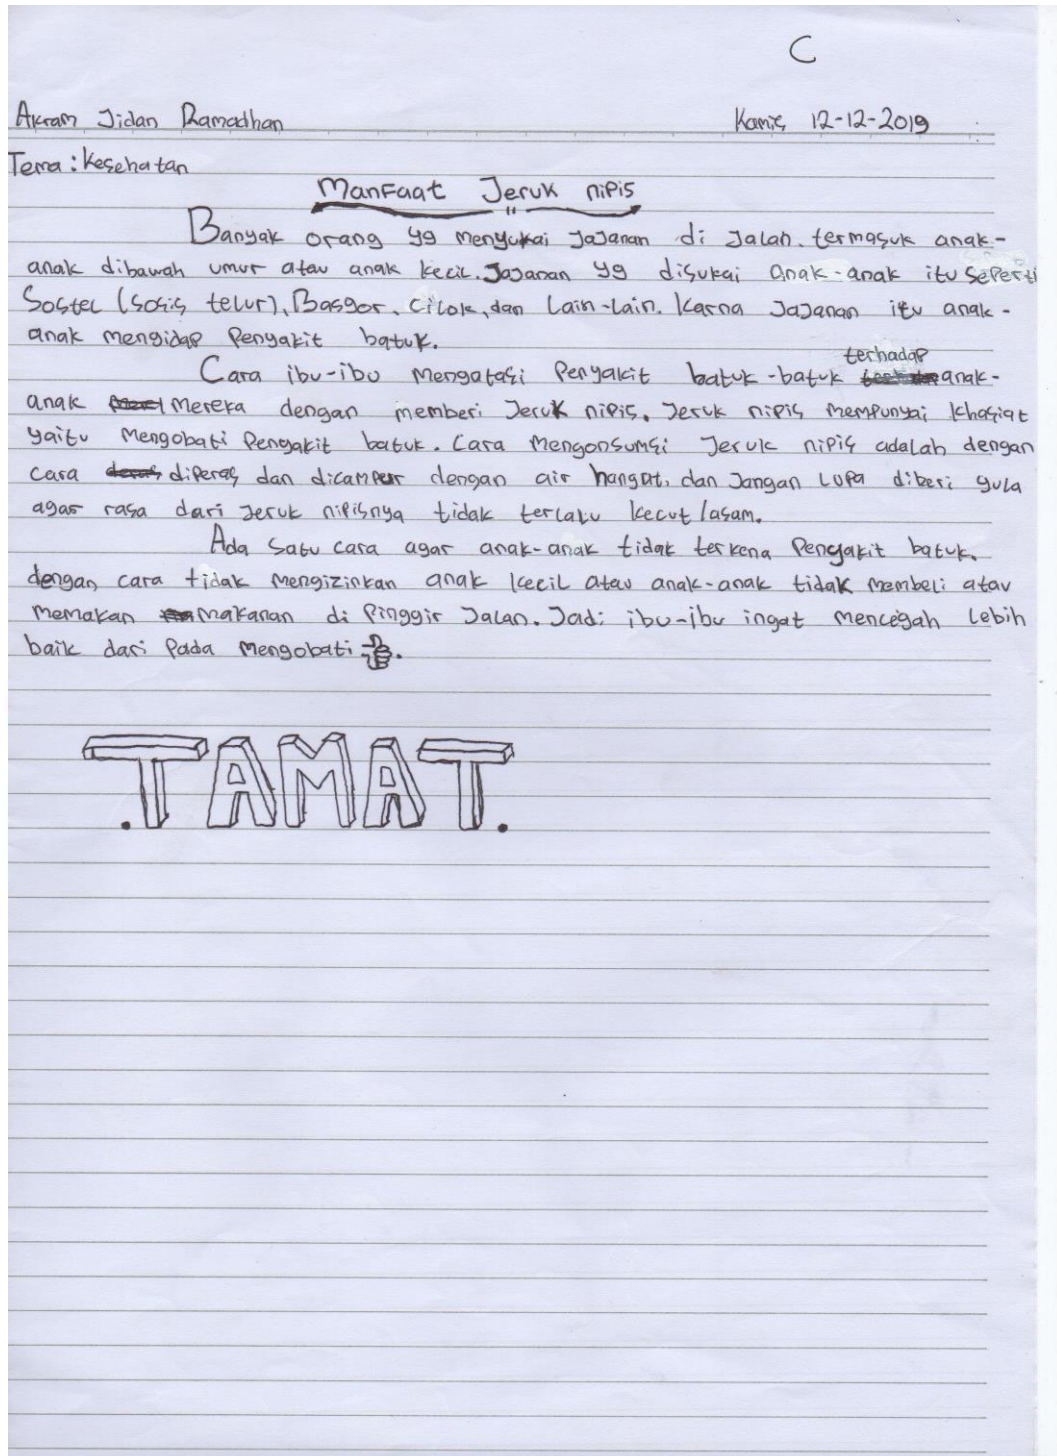 C
Akram Jidan Ramadhan Kamis 12-12-2019
Tema : Kesehatan
Manfaat Jeruk nipis
Banyak orang yg menyukai jajanan di jalan. termasuk anak-
anak dibawah umur atau anak kecil. Jajanan yg disukai anak-anak itu seperti
Sostel (sosis telur), Basgor, cilok, dan lain-lain. Karna jajanan itu anak-
anak mengidap penyakit batuk.
Cara ibu-ibu mengatasi penyakit batuk-batuk terhadap anak-
anak mereka dengan memberi jeruk nipis. Jeruk nipis mempunyai khasiat
yaitu mengobati penyakit batuk. Cara mengonsumsi jeruk nipis adalah dengan
cara diperas dan dicampur dengan air hangat, dan jangan lupa diberi gula
agar rasa dari jeruk nipisnya tidak terlalu kecut/asam.
Ada satu cara agar anak-anak tidak terkena penyakit batuk.
dengan cara tidak mengizinkan anak kecil atau anak-anak tidak membeli atau
memakan makanan di pinggir jalan. Jadi ibu-ibu ingat mencegah lebih
baik dari pada mengobati.
.TAMAT.